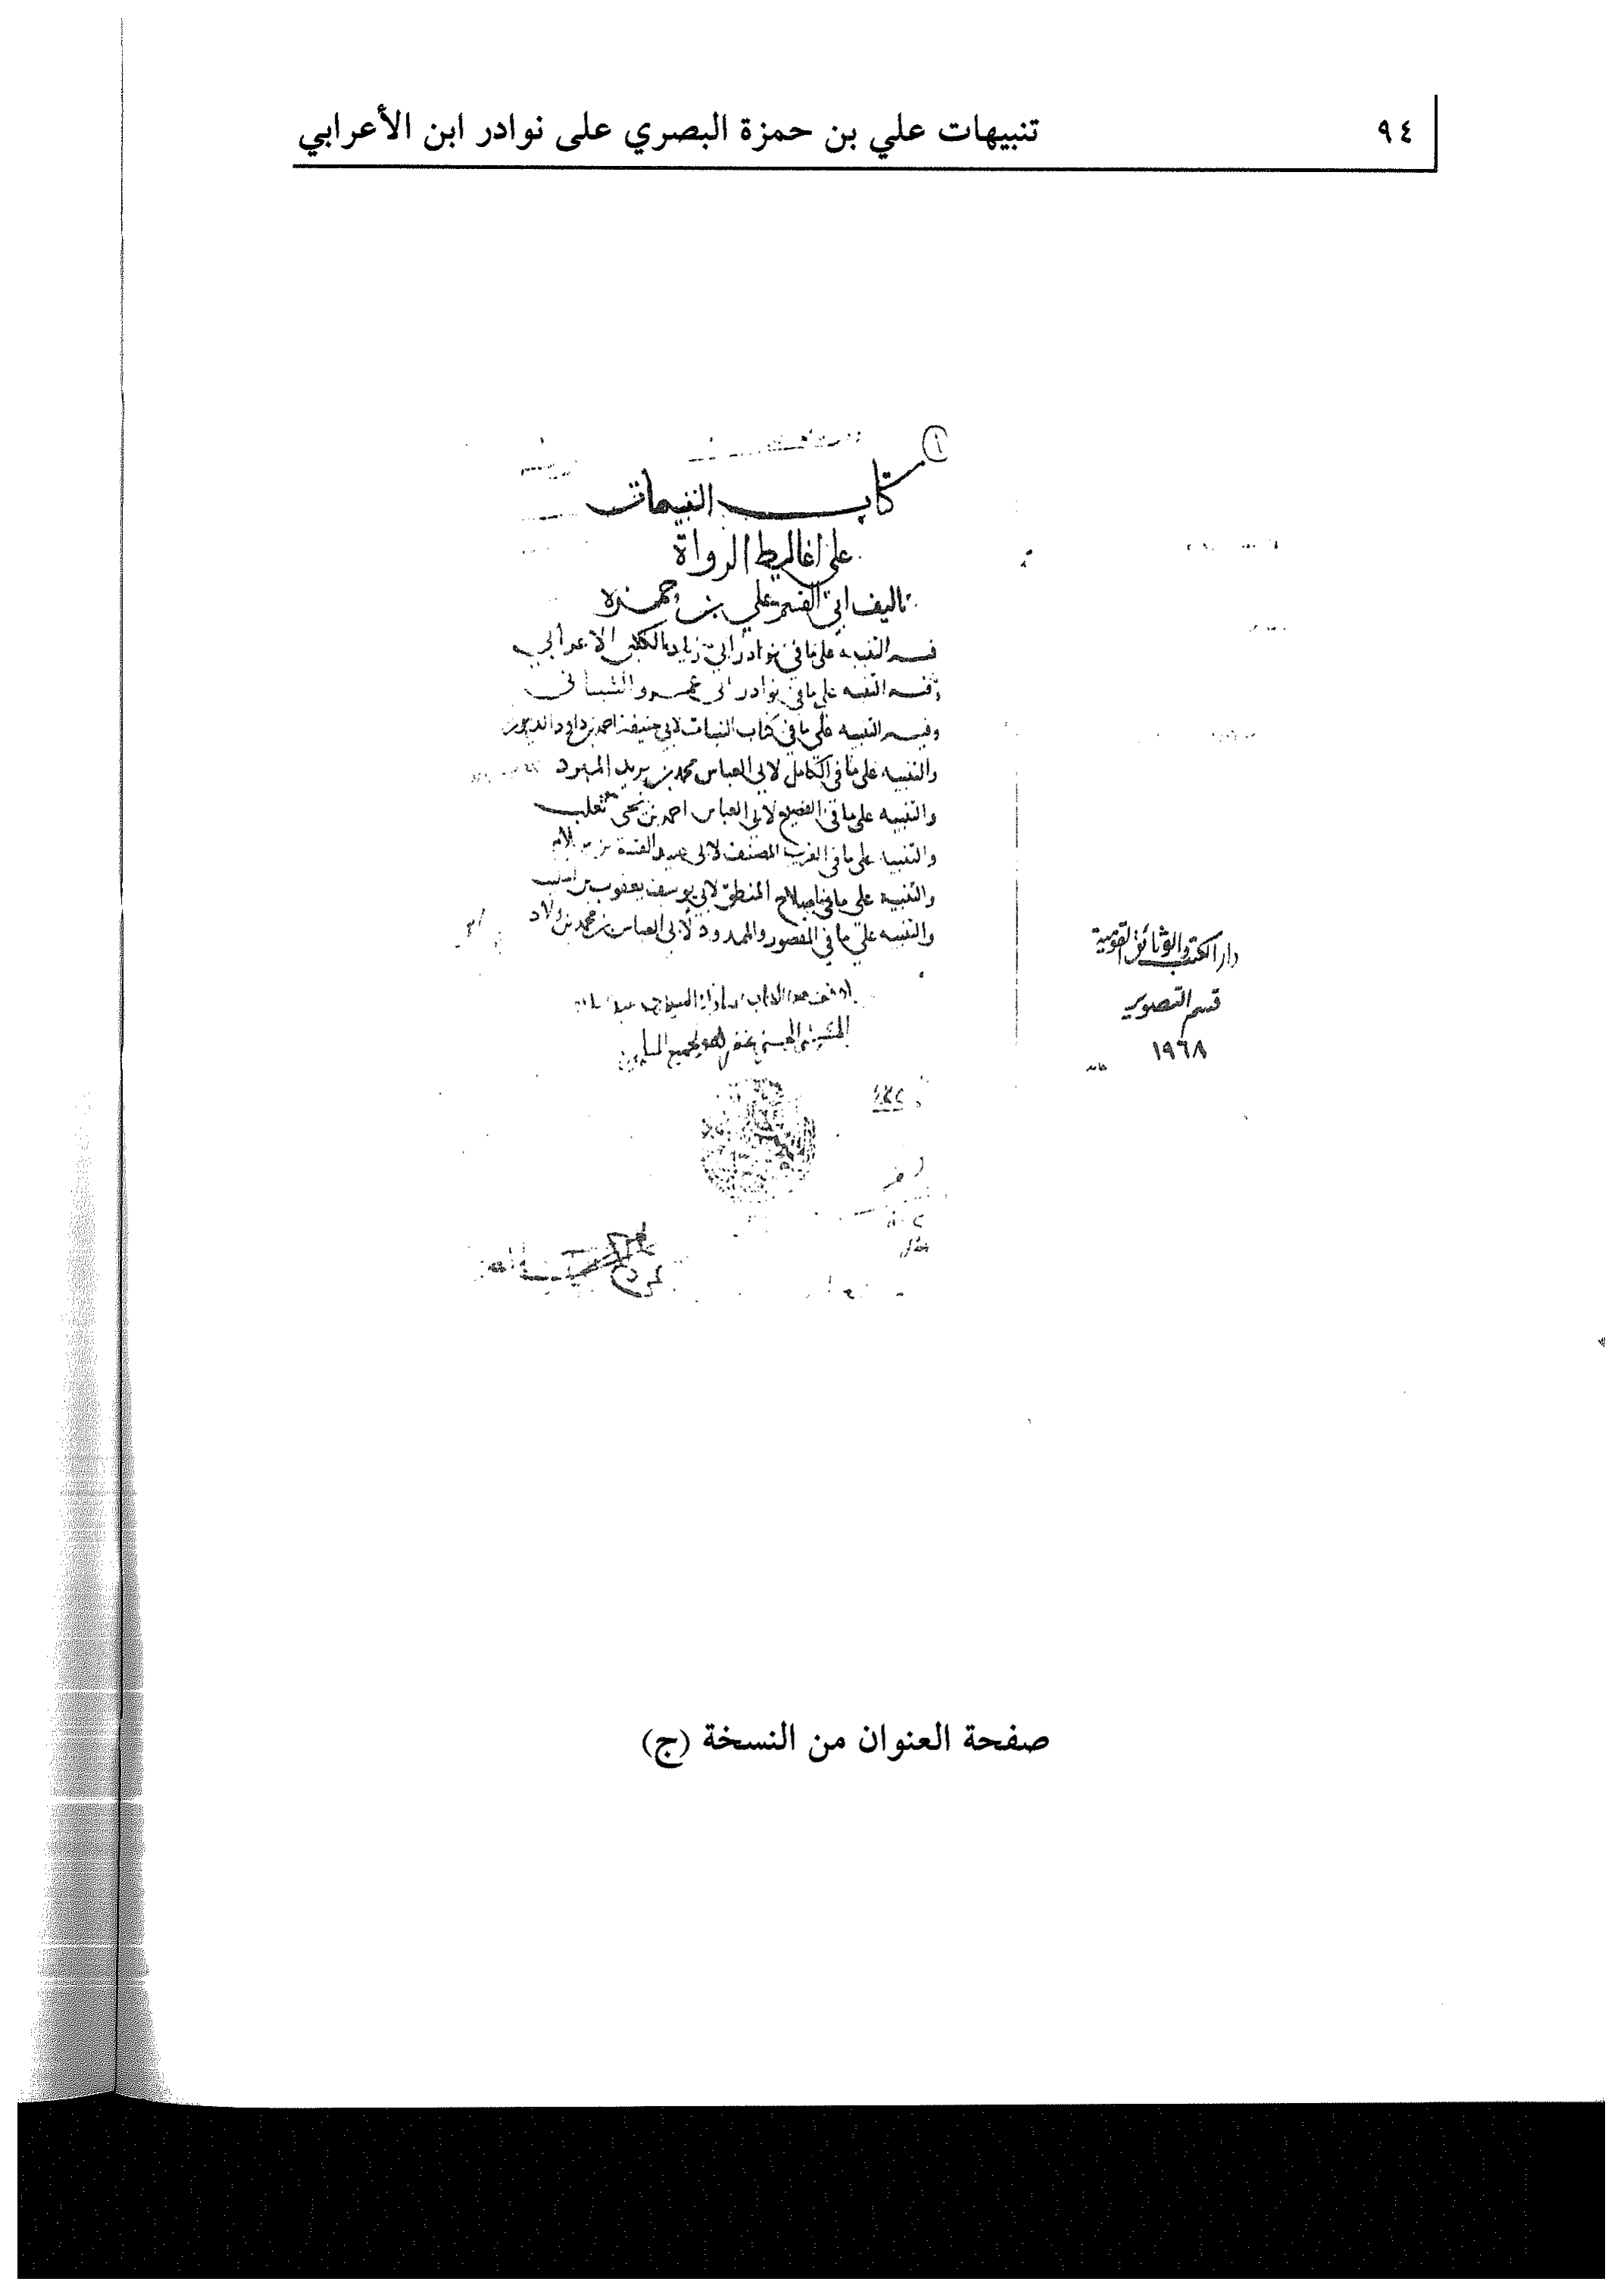 ٩٤
تنبيهات علي بن حمزة البصري على نوادر ابن الأعرابي
١
كتاب التنبيهات
على اغاليط الرواة
تاليف ابى القسم علي بن حمزه
فيه التنبيه على ما في نوادر ابى زياد الكلابى الاعرابي
وفيه التنبيه على ما في نوادر ابى عمرو الشيبانى
وفيه التنبيه على ما في كتاب النبات لابي حنيفة احمد بن داود الدينورى
والتنبيه على ما في الكامل لابى العباس محمد بن يزيد المبرد
والتنبيه على ما في الفصيح لابى العباس احمد بن يحى ثعلب
والتنبيه على ما في الغريب المصنف لابى عبيد القسم بن سلام
والتنبيه على ما في اصلاح المنطق لابي يوسف يعقوب بن
والتنبيه على ما في المقصور والممدود لأبى العباس بن محمد بن ولاد
الحسني غفر له ولجميع المسلمين
دار الكتب والوثائق القومية
قسم التصوير
١٩٦٨
صفحة العنوان من النسخة (ج)